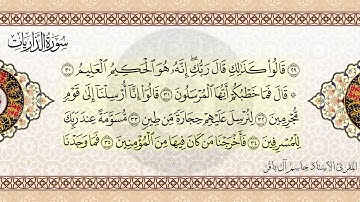 سُورَةُ الذَّارِيَات
٢٩ قَالُوا۟ كَذَٰلِكِ قَالَ رَبُّكِ ۖ إِنَّهُۥ هُوَ ٱلْحَكِيمُ ٱلْعَلِيمُ ٣٠
۞ قَالَ فَمَا خَطْبُكُمْ أَيُّهَا ٱلْمُرْسَلُونَ ٣١ قَالُوٓا۟ إِنَّآ أُرْسِلْنَآ إِلَىٰ قَوْمٍ
مُّجْرِمِينَ ٣٢ لِنُرْسِلَ عَلَيْهِمْ حِجَارَةً مِّن طِينٍ ٣٣ مُّسَوَّمَةً عِندَ رَبِّكَ
لِلْمُسْرِفِينَ ٣٤ فَأَخْرَجْنَا مَن كَانَ فِيهَا مِنَ ٱلْمُؤْمِنِينَ ٣٥ فَمَا وَجَدْنَا
المقرئ الأستاذ جاسم آل باقر